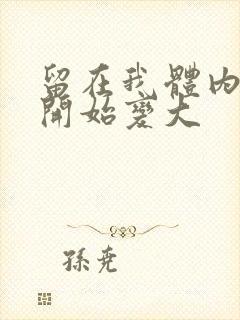 留在我體內
開始變大
孫堯